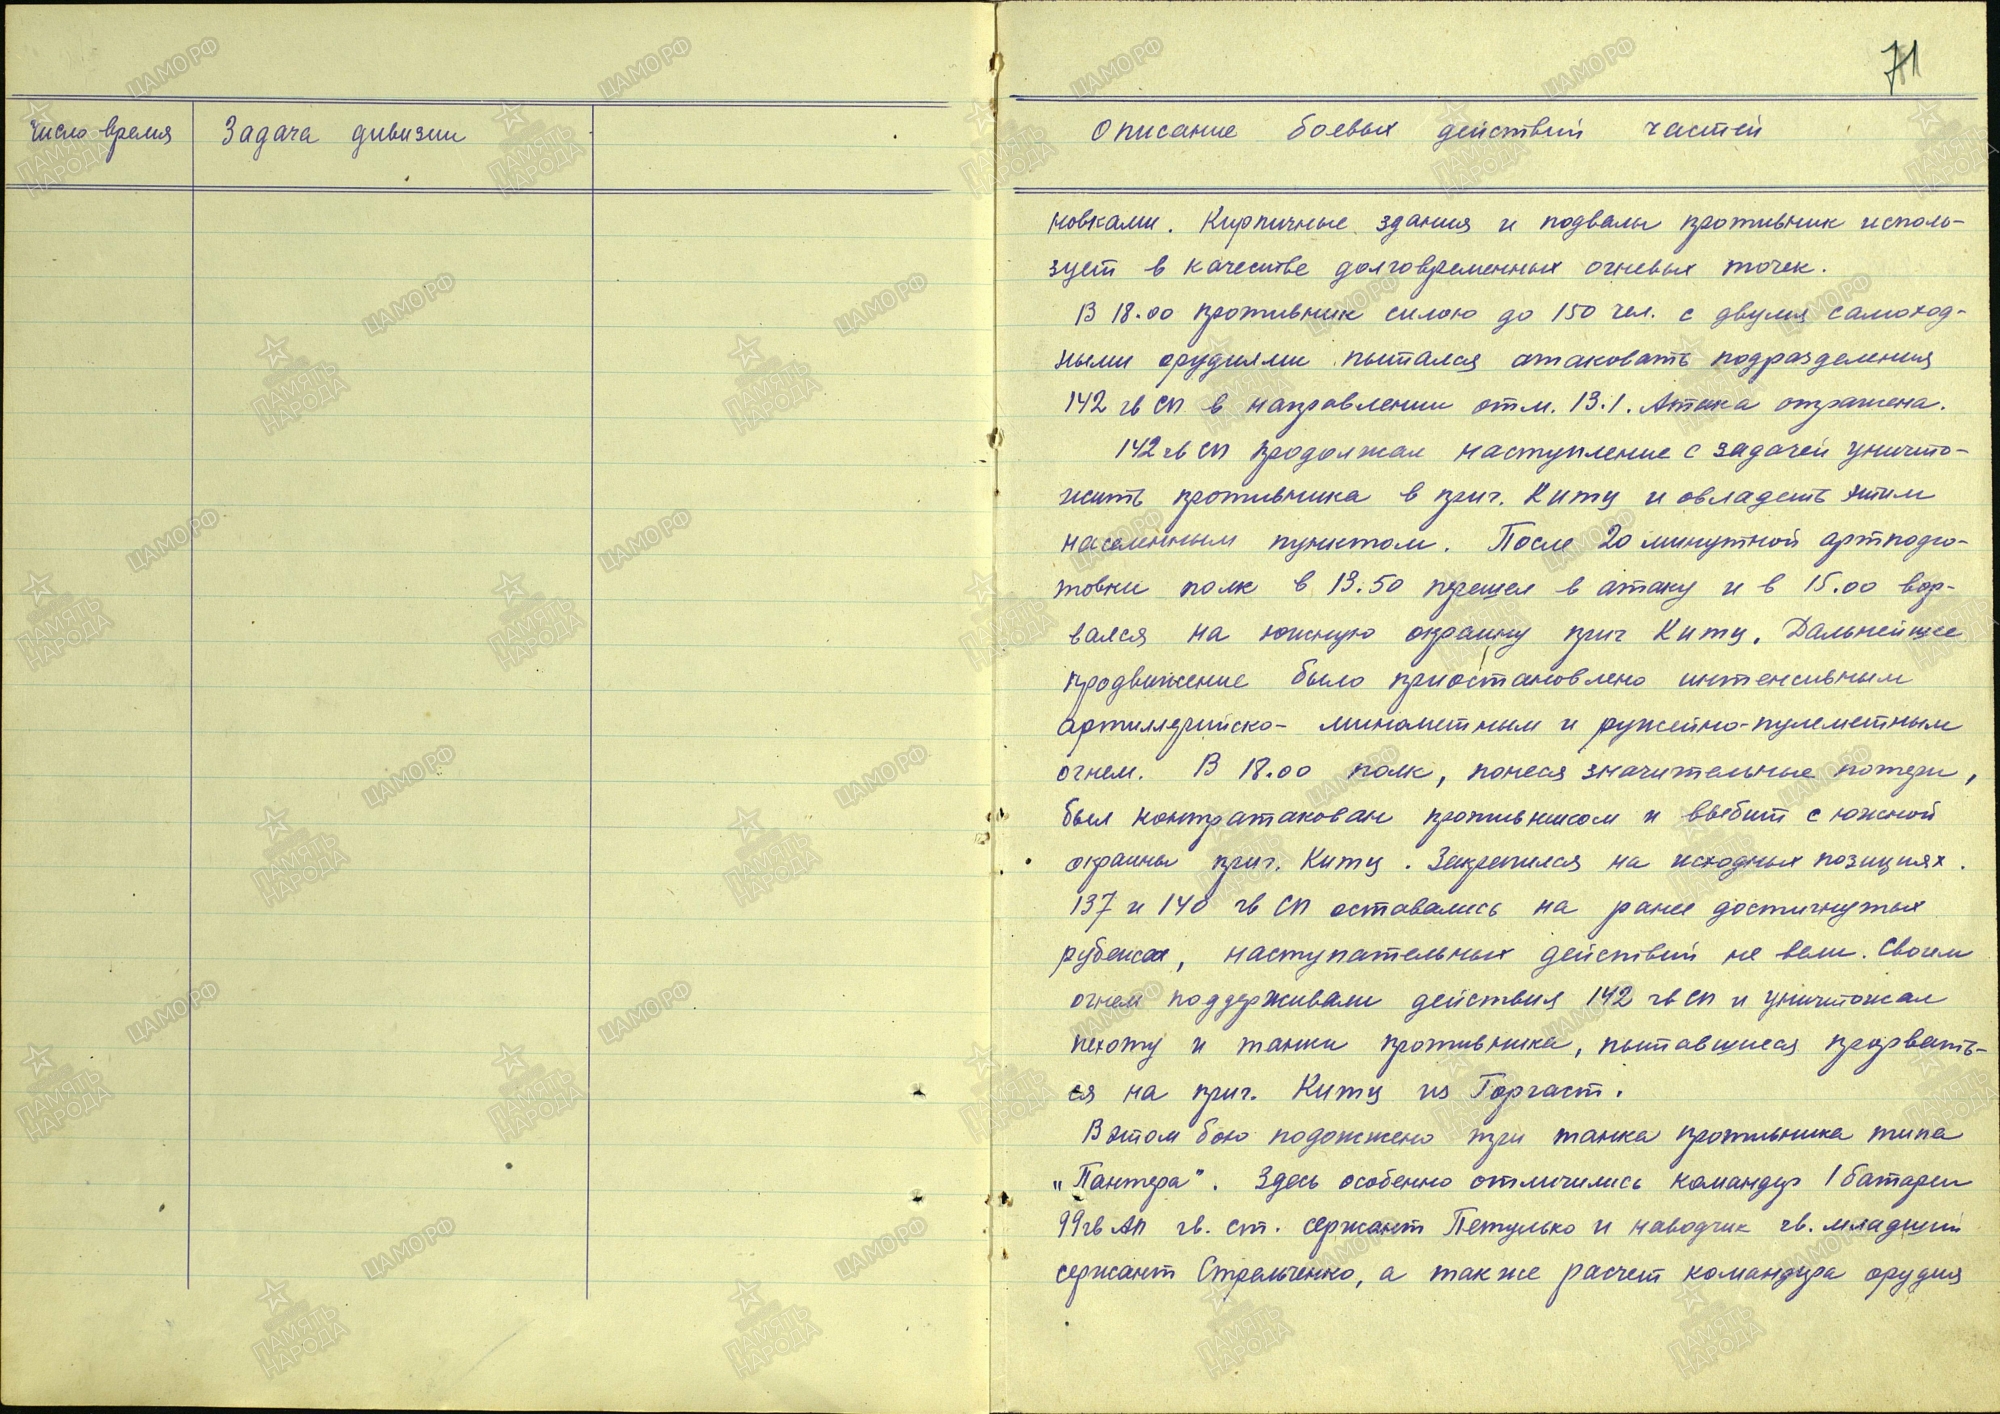 71
Число время
Задача дивизии
Описание боевых действий частей
новками. Кирпичные здания и подвалы противник исполь-
зует в качестве долговременных огневых точек.
В 18.00 противник силою до 150 чел. с двумя самоход-
ными орудиями пытался атаковать подразделения
142 гв СП в направлении отм. 13.1. Атака отражена.
142 гв СП продолжал наступление с задачей уничто-
жить противника в приг. Китц и овладеть этим
населенным пунктом. После 20 минутной артподго-
товки полк в 13.50 перешел в атаку и в 15.00 вор-
вался на южную окраину приг Китц. Дальнейшее
продвижение было приостановлено интенсивным
артиллерийско- минометным и ружейно-пулеметным
огнем. В 18.00 полк, понеся значительные потери,
был контратакован противником и выбит с южной
окраины приг. Китц. Закрепился на исходных позициях.
137 и 140 гв СП оставались на ранее достигнутых
рубежах, наступательных действий не вели. Своим
огнем поддерживали действия 142 гв СП и уничтожал
пехоту и танки противника, пытавшиеся прорвать-
ся на приг. Китц из Горгаст.
В этом бою подожжено три танка противника типа
„Пантера". Здесь особенно отличились командир 1 батареи
99 гв АП гв. ст. сержант Петулько и наводчик гв. младший
сержант Стрельченко, а также расчет командира орудия
ЦАМО.РФ
ПАМЯТЬ НАРОДА